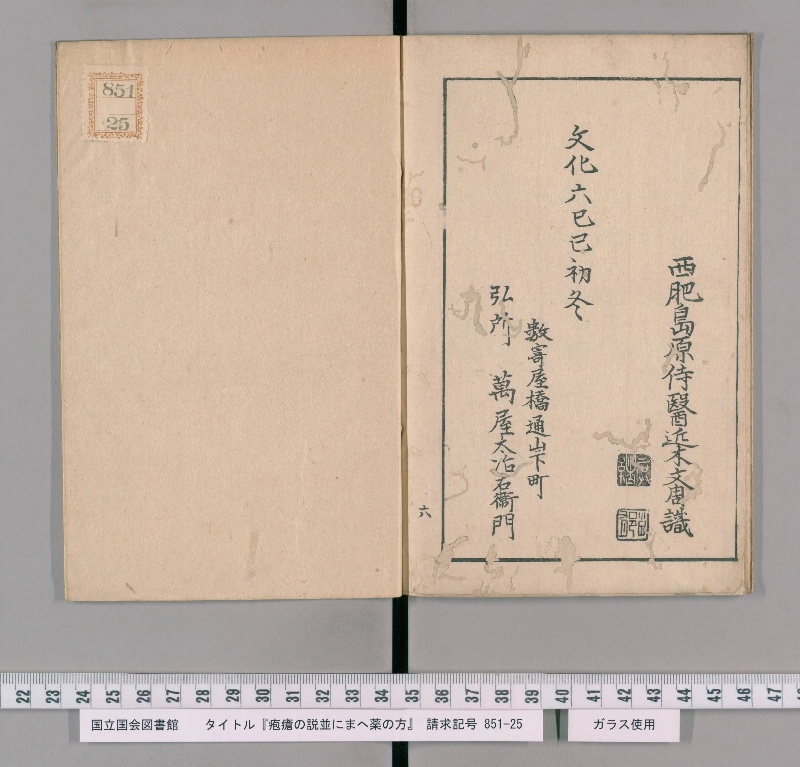 西肥島原侍醫近木文周識
文化六己巳初冬
數寄屋橋通山下町
弘所 萬屋太治右衞門
六
851
25
22 23 24 25 26 27 28 29 30 31 32 33 34 35 36 37 38 39 40 41 42 43 44 45 46 47
国立国会図書館 タイトル『疱瘡の説並にまへ薬の方』 請求記号 851-25
ガラス使用